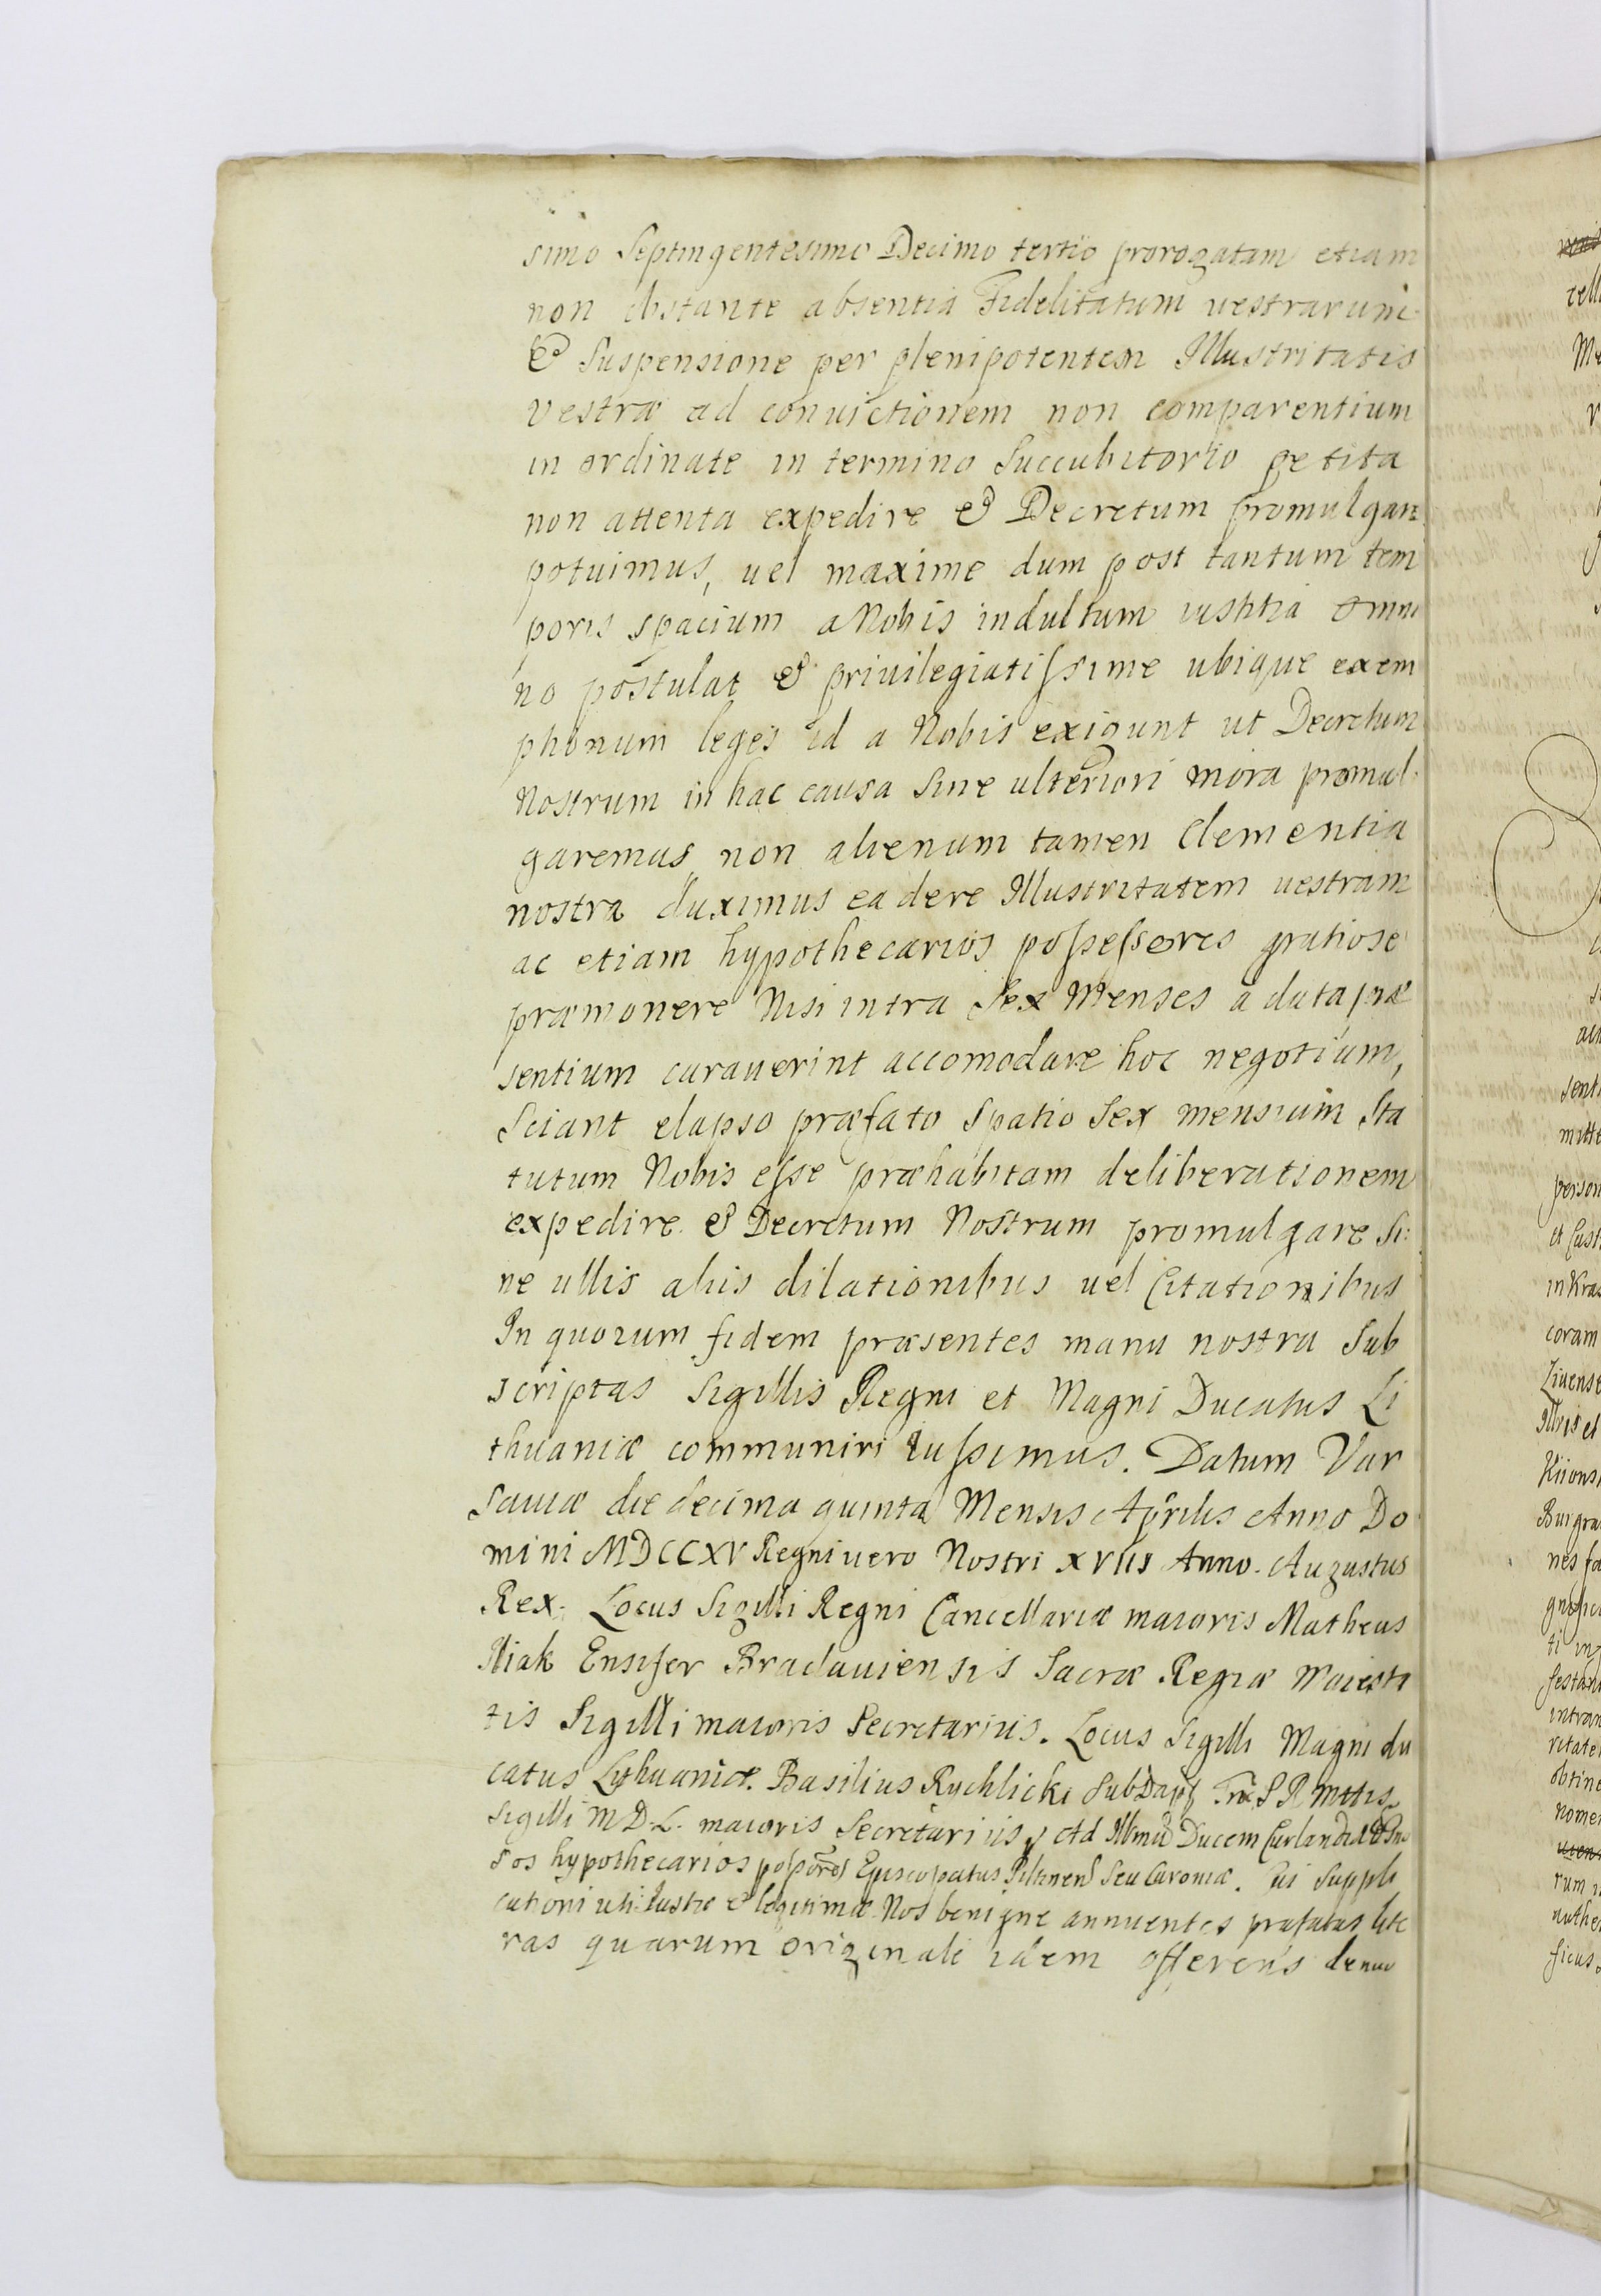 simo Septingentesimo Decimo tertio prorogatam etiam
non obstante absentia Fidelitatum vestrarum
& Suspensione per plenipotentem Illustritatis
vestræ ad convictionem non comparentium
in ordinate in termino Succubitorio petita
non attenta expedire & Decretum promulgare
potuimus, uel maxime dum post tantum tem
poris spacium a Nobis indultum iustitia omni
no postulat & priuilegiatissime ubique exem
ptionum leges id a Nobis exigunt ut Decretum
Nostrum in hac causa Sine ulteriori mora promul
garemus, non alienum tamen Clementia
nostra duximus ea de re Illustritatem uestram
ac etiam hypothecarios possessores gratiose
præmonere Nisi intra Sex Menses a data præ
sentium curauerint accomodare hoc negotium,
Sciant elapso præfato Spatio Sex mensium Sta
tutum Nobis esse præhabitam deliberationem
expedire & Decretum Nostrum promulgare Si:
ne ullis aliis dilationibus uel Citationibus
In quorum fidem præsentes manu nostra Sub
scriptas Sigillis Regni et Magni Ducatus Li
thuaniæ communiri iussimus. Datum Var
sauiæ die decima quinta Mensis Aprilis Anno Do
mini MDCCXV Regni uero Nostri XVIII Anno. Augustus
Rex. Locus Sigilli Regni Cancellariæ maioris Matheus
Iliak Ensifer Braclauiensis Sacræ Regiæ Maiesta
tis Sigilli maioris Secretarius. Locus Sigilli Magni du
catus Lythuaniæ. Basilius Rychlicki SubDapf S R Mttis
Sigilli M D. L. maioris Secretarius Ad Illmū Ducem Curlandiæ &
sos hypothecarios Episcopatus Piltnens Seu Curoniæ. Cui Suppli
cationi uti Iustæ & legitimæ Nos benigne annuentes præfatas lite
ras quarum originale idem offerens denuo